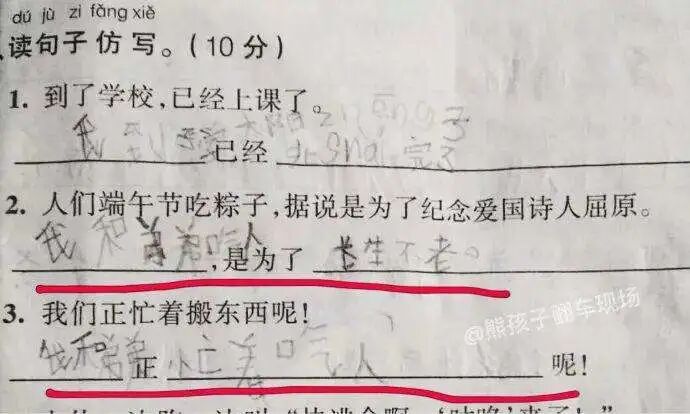 dú jù zi fǎng xiě
读句子仿写。(10分)
1. 到了学校,已经上课了。
我 已经 完了
2. 人们端午节吃粽子,据说是为了纪念爱国诗人屈原。
我和弟弟吃人,是为了长生不老。
3. 我们正忙着搬东西呢!
@熊孩子翻车现场
我和弟弟正忙着吃人呢!